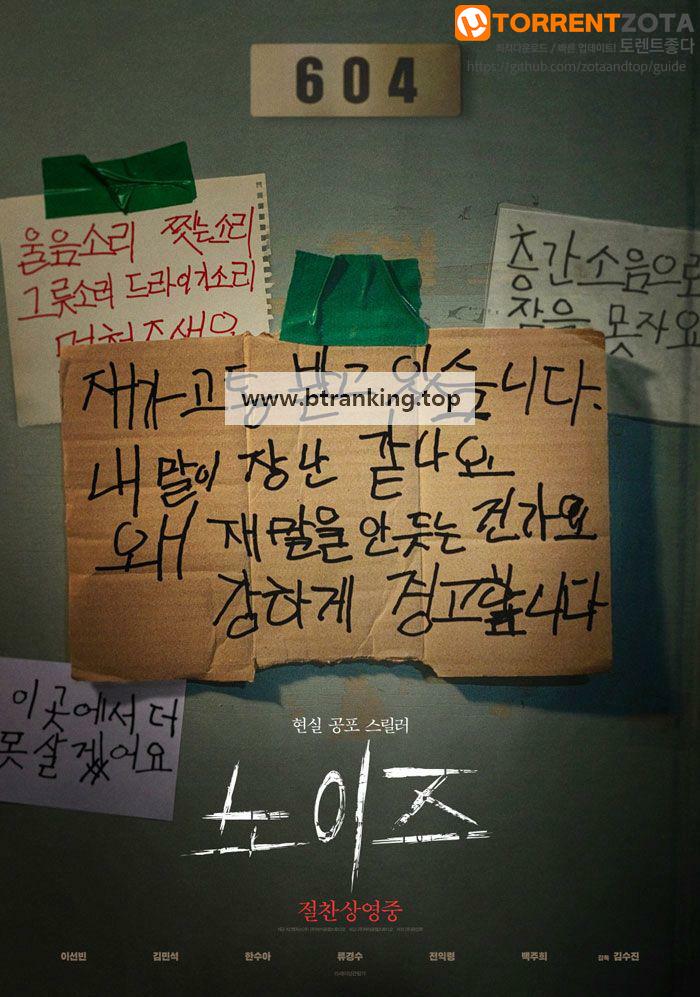 TORRENTZOTA
최저다운로드 / 빠른 업데이트! 토렌트좋다
https://github.com/zotaandtop/guide
604
울음소리 찢는소리
그릇소리 드라이기소리
멈춰주세요
층간소음으로
잠을 못자요
재가 고통 받고 있습니다.
www.btranking.top
내 말이 장난 같나요
왜 재 말을 안 듯는 건가요
강하게 경고합니다
이 곳에서 더
못 살겠어요
현실 공포 스릴러
노이즈
절찬상영중
이선빈 김민석 한수아 류경수 전익령 백주희 감독 김수진